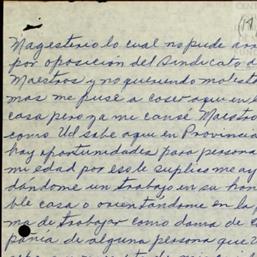 Magisterio lo cual no pude
por oposicion del Sindicato d
Maestros y no queriendo molesta
mas me puse a coser aqui en
casa pero ya me cansé Maestro
como Ud sabe aqui en Provincia
hay oportunidades para persona
mi edad por eso le suplico me ay
dándome un trabajo en su hon
ble casa o orientándome en la
ma de trabajar como dama de c
pañía de alguna persona que